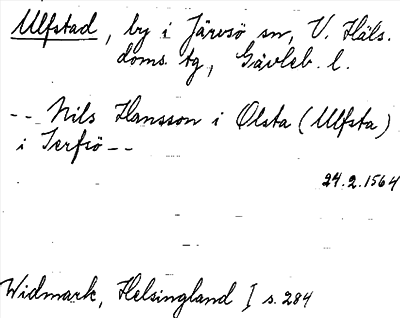 Ulfstad, by i Järvsö sn, V. Häls.
doms. tg, Gävleb. l.
-- Nils Hansson i Olsta (Ulfsta)
i Jerfsö --
24.2.1564
Widmark, Helsingland I s. 284